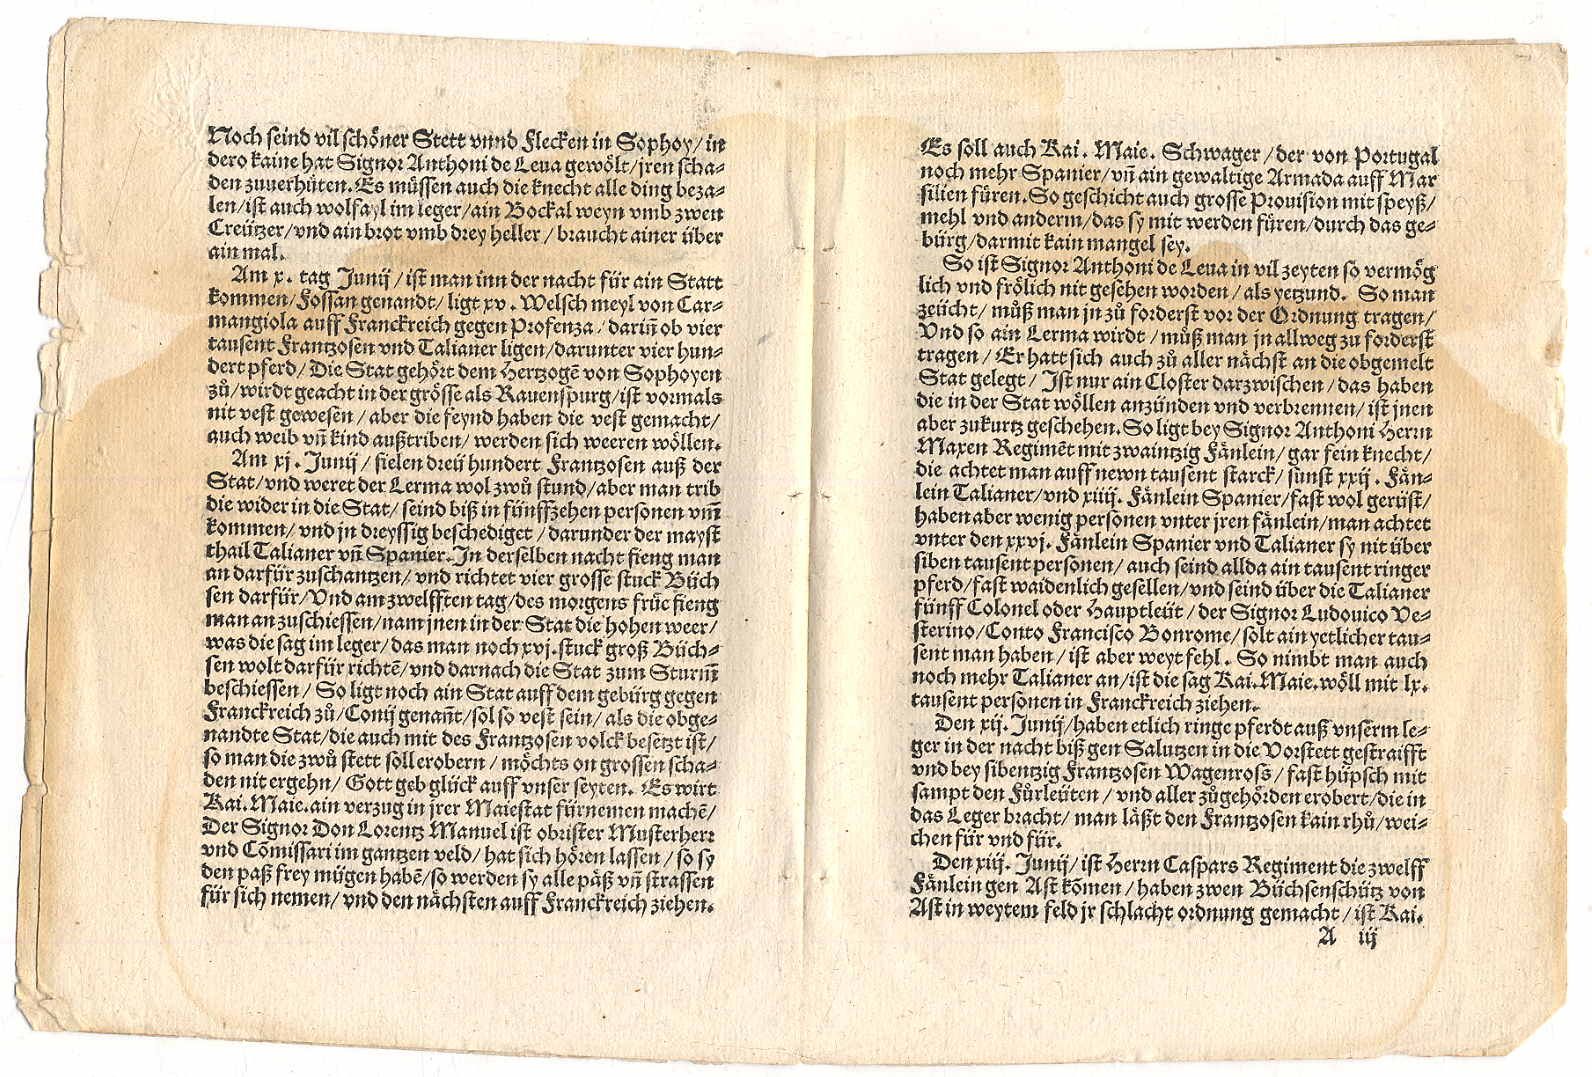 Noch seind vil schöner Stett vnnd Flecken in Sophoy/ in
dero kaine hat Signor Anthoni de Leua gewölt/ jren scha-
den zuuerhüten. Es müssen auch die knecht alle ding beza-
len/ ist auch wolfayl im leger/ ain Bockal weyn vmb zwen
Creützer/ vnd ain brot vmb drey heller/ braucht ainer über
ain mal.
Am x. tag Junij/ ist man inn der nacht für ain Statt
kommen/ Fossan genandt/ ligt xv. Welsch meyl von Car-
mangiola auff Franckreich gegen Profenza/ dariñ ob vier
tausent Frantzosen vnd Talianer ligen/ darunter vier hun-
dert pferd/ Die Stat gehört dem Hertzogē von Sophoyen
zů/ wirdt geacht in der grösse als Rauenspurg/ ist vormals
nit vest gewesen/ aber die feynd haben die vest gemacht/
auch weib vñ kind außtriben/ werden sich weeren wöllen.
Am xj. Junij/ fielen dreü hundert Frantzosen auß der
Stat/ vnd weret der Lerma wol zwů stund/ aber man trib
die wider in die Stat/ seind biß in fünffzehen personen vm̄
kommen/ vnd jn dreyssig beschediget/ darunder der mayst
thail Talianer vñ Spanier. In derselben nacht fieng man
an darfür zuschantzen/ vnd richtet vier grosse stuck Büch
sen darfür/ Vnd am zwelfften tag/ des morgens früe fieng
man an zuschiessen/ nam jnen in der Stat die hohen weer/
was die sag im leger/ das man noch xvj. stuck groß Büch-
sen wolt darfür richtē/ vnd darnach die Stat zum Sturm̄
beschiessen/ So ligt noch ain Stat auff dem gebürg gegen
Franckreich zů/ Conij genañt/ sol so vest sein/ als die obge-
nandte Stat/ die auch mit des Frantzosen volck besetzt ist/
so man die zwů stett soll erobern/ möchts on grossen scha-
den nit ergehn/ Gott geb glück auff vnser seyten. Es wirt
Kai. Maie. ain verzug in jrer Maiestat fürnemen machē/
Der Signor Don Lorentz Manuel ist obrister Musterherr
vnd Cōmissari im gantzen veld/ hat sich hören lassen/ so sy
den paß frey mügen habē/ so werden sy alle päß vñ strassen
für sich nemen/ vnd den nächsten auff Franckreich ziehen.
Es soll auch Kai. Maie. Schwager/ der von Portugal
noch mehr Spanier/ vñ ain gewaltige Armada auff Mar
silien füren. So geschicht auch grosse Prouision mit speyß/
mehl vnd anderm/ das sy mit werden füren/ durch das ge-
bürg/ darmit kain mangel sey.
So ist Signor Anthoni de Leua in vil zeyten so vermög
lich vnd frölich nit gesehen worden/ als yetzund. So man
zeücht/ můß man jn zů forderst vor der Ordnung tragen/
Vnd so ain Lerma wirdt/ můß man jn allweg zu forderst
tragen/ Er hatt sich auch zů aller nächst an die obgemelt
Stat gelegt/ Ist nur ain Closter darzwischen/ das haben
die in der Stat wöllen anzünden vnd verbrennen/ ist jnen
aber zukurtz geschehen. So ligt bey Signor Anthoni Herrn
Maxen Regimēt mit zwaintzig Fänlein/ gar fein knecht/
die achtet man auff newn tausent starck/ sunst xxij. Fän-
lein Talianer/ vnd xiiij. Fänlein Spanier/ fast wol gerüst/
haben aber wenig personen vnter jren fänlein/ man achtet
vnter den xxvj. Fänlein Spanier vnd Talianer sy nit über
siben tausent personen/ auch seind allda ain tausent ringer
pferd/ fast waidenlich gesellen/ vnd seind über die Talianer
fünff Colonel oder Hauptleüt/ der Signor Ludouico Ve-
sterino/ Conto Francisco Bonrome/ solt ain yetlicher tau-
sent man haben/ ist aber weyt fehl. So nimbt man auch
noch mehr Talianer an/ ist die sag Kai. Maie. wöll mit lx.
tausent personen in Franckreich ziehen.
Den xij. Junij/ haben etlich ringe pferdt auß vnserm le-
ger in der nacht biß gen Salutzen in die Vorstett gestraifft
vnd bey sibentzig Frantzosen Wagenross/ fast hüpsch mit
sampt den Fůrleüten/ vnd aller zůgehörden erobert/ die in
das Leger bracht/ man läßt den Frantzosen kain rhů/ wei-
chen für vnd für.
Den xiij. Junij/ ist Herrn Caspars Regiment die zwelff
Fänlein gen Ast kōmen/ haben zwen Büchsenschütz von
Ast in weytem feld jr schlacht ordnung gemacht/ ist Kai.
A iij